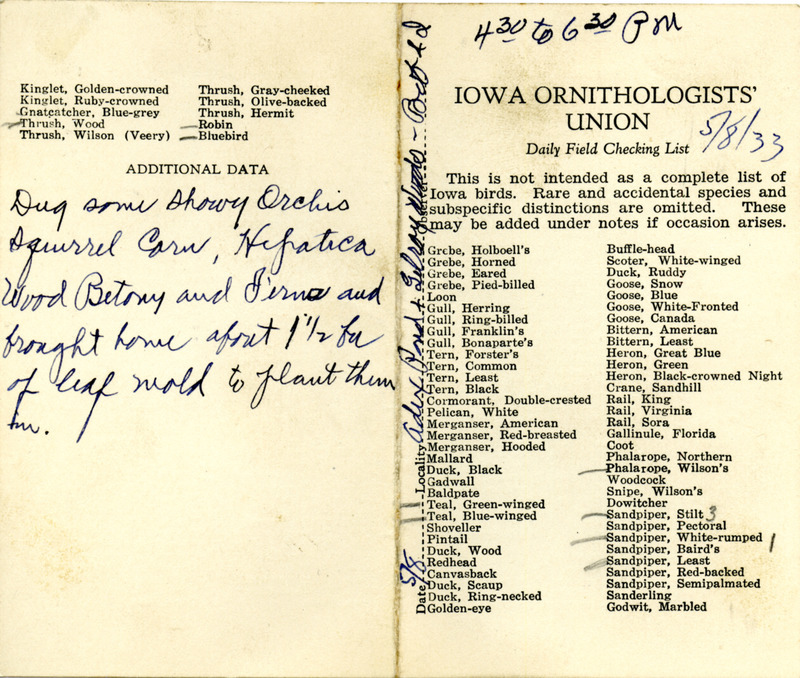 Kinglet, Golden-crowned
Kinglet, Ruby-crowned
Gnatcatcher, Blue-grey
Thrush, Wood
Thrush, Wilson (Veery)
Thrush, Gray-cheeked
Thrush, Olive-backed
Thrush, Hermit
Robin
Bluebird
ADDITIONAL DATA
Dug some showy Orchis
Squirrel Corn, Hepatica
Wood Betony and Ferns and
brought home about 1 1/2 bu
of leaf mold to plant them
in.
Date 5/8 Locality Pond & Woods - Observer
4 30 to 6 30 PM
IOWA ORNITHOLOGISTS'
UNION
Daily Field Checking List 5/8/33
This is not intended as a complete list of
Iowa birds. Rare and accidental species and
subspecific distinctions are omitted. These
may be added under notes if occasion arises.
Grebe, Holboell's
Grebe, Horned
Grebe, Eared
Grebe, Pied-billed
Loon
Gull, Herring
Gull, Ring-billed
Gull, Franklin's
Gull, Bonaparte's
Tern, Forster's
Tern, Common
Tern, Least
Tern, Black
Cormorant, Double-crested
Pelican, White
Merganser, American
Merganser, Red-breasted
Merganser, Hooded
Mallard
Duck, Black
Gadwall
Baldpate
Teal, Green-winged
Teal, Blue-winged
Shoveller
Pintail
Duck, Wood
Redhead
Canvasback
Duck, Scaup
Duck, Ring-necked
Golden-eye
Buffle-head
Scoter, White-winged
Duck, Ruddy
Goose, Snow
Goose, Blue
Goose, White-Fronted
Goose, Canada
Bittern, American
Bittern, Least
Heron, Great Blue
Heron, Green
Heron, Black-crowned Night
Crane, Sandhill
Rail, King
Rail, Virginia
Rail, Sora
Gallinule, Florida
Coot
Phalarope, Northern
Phalarope, Wilson's
Woodcock
Snipe, Wilson's
Dowitcher
Sandpiper, Stilt 3
Sandpiper, Pectoral
Sandpiper, White-rumped 1
Sandpiper, Baird's
Sandpiper, Least
Sandpiper, Red-backed
Sandpiper, Semipalmated
Sanderling
Godwit, Marbled